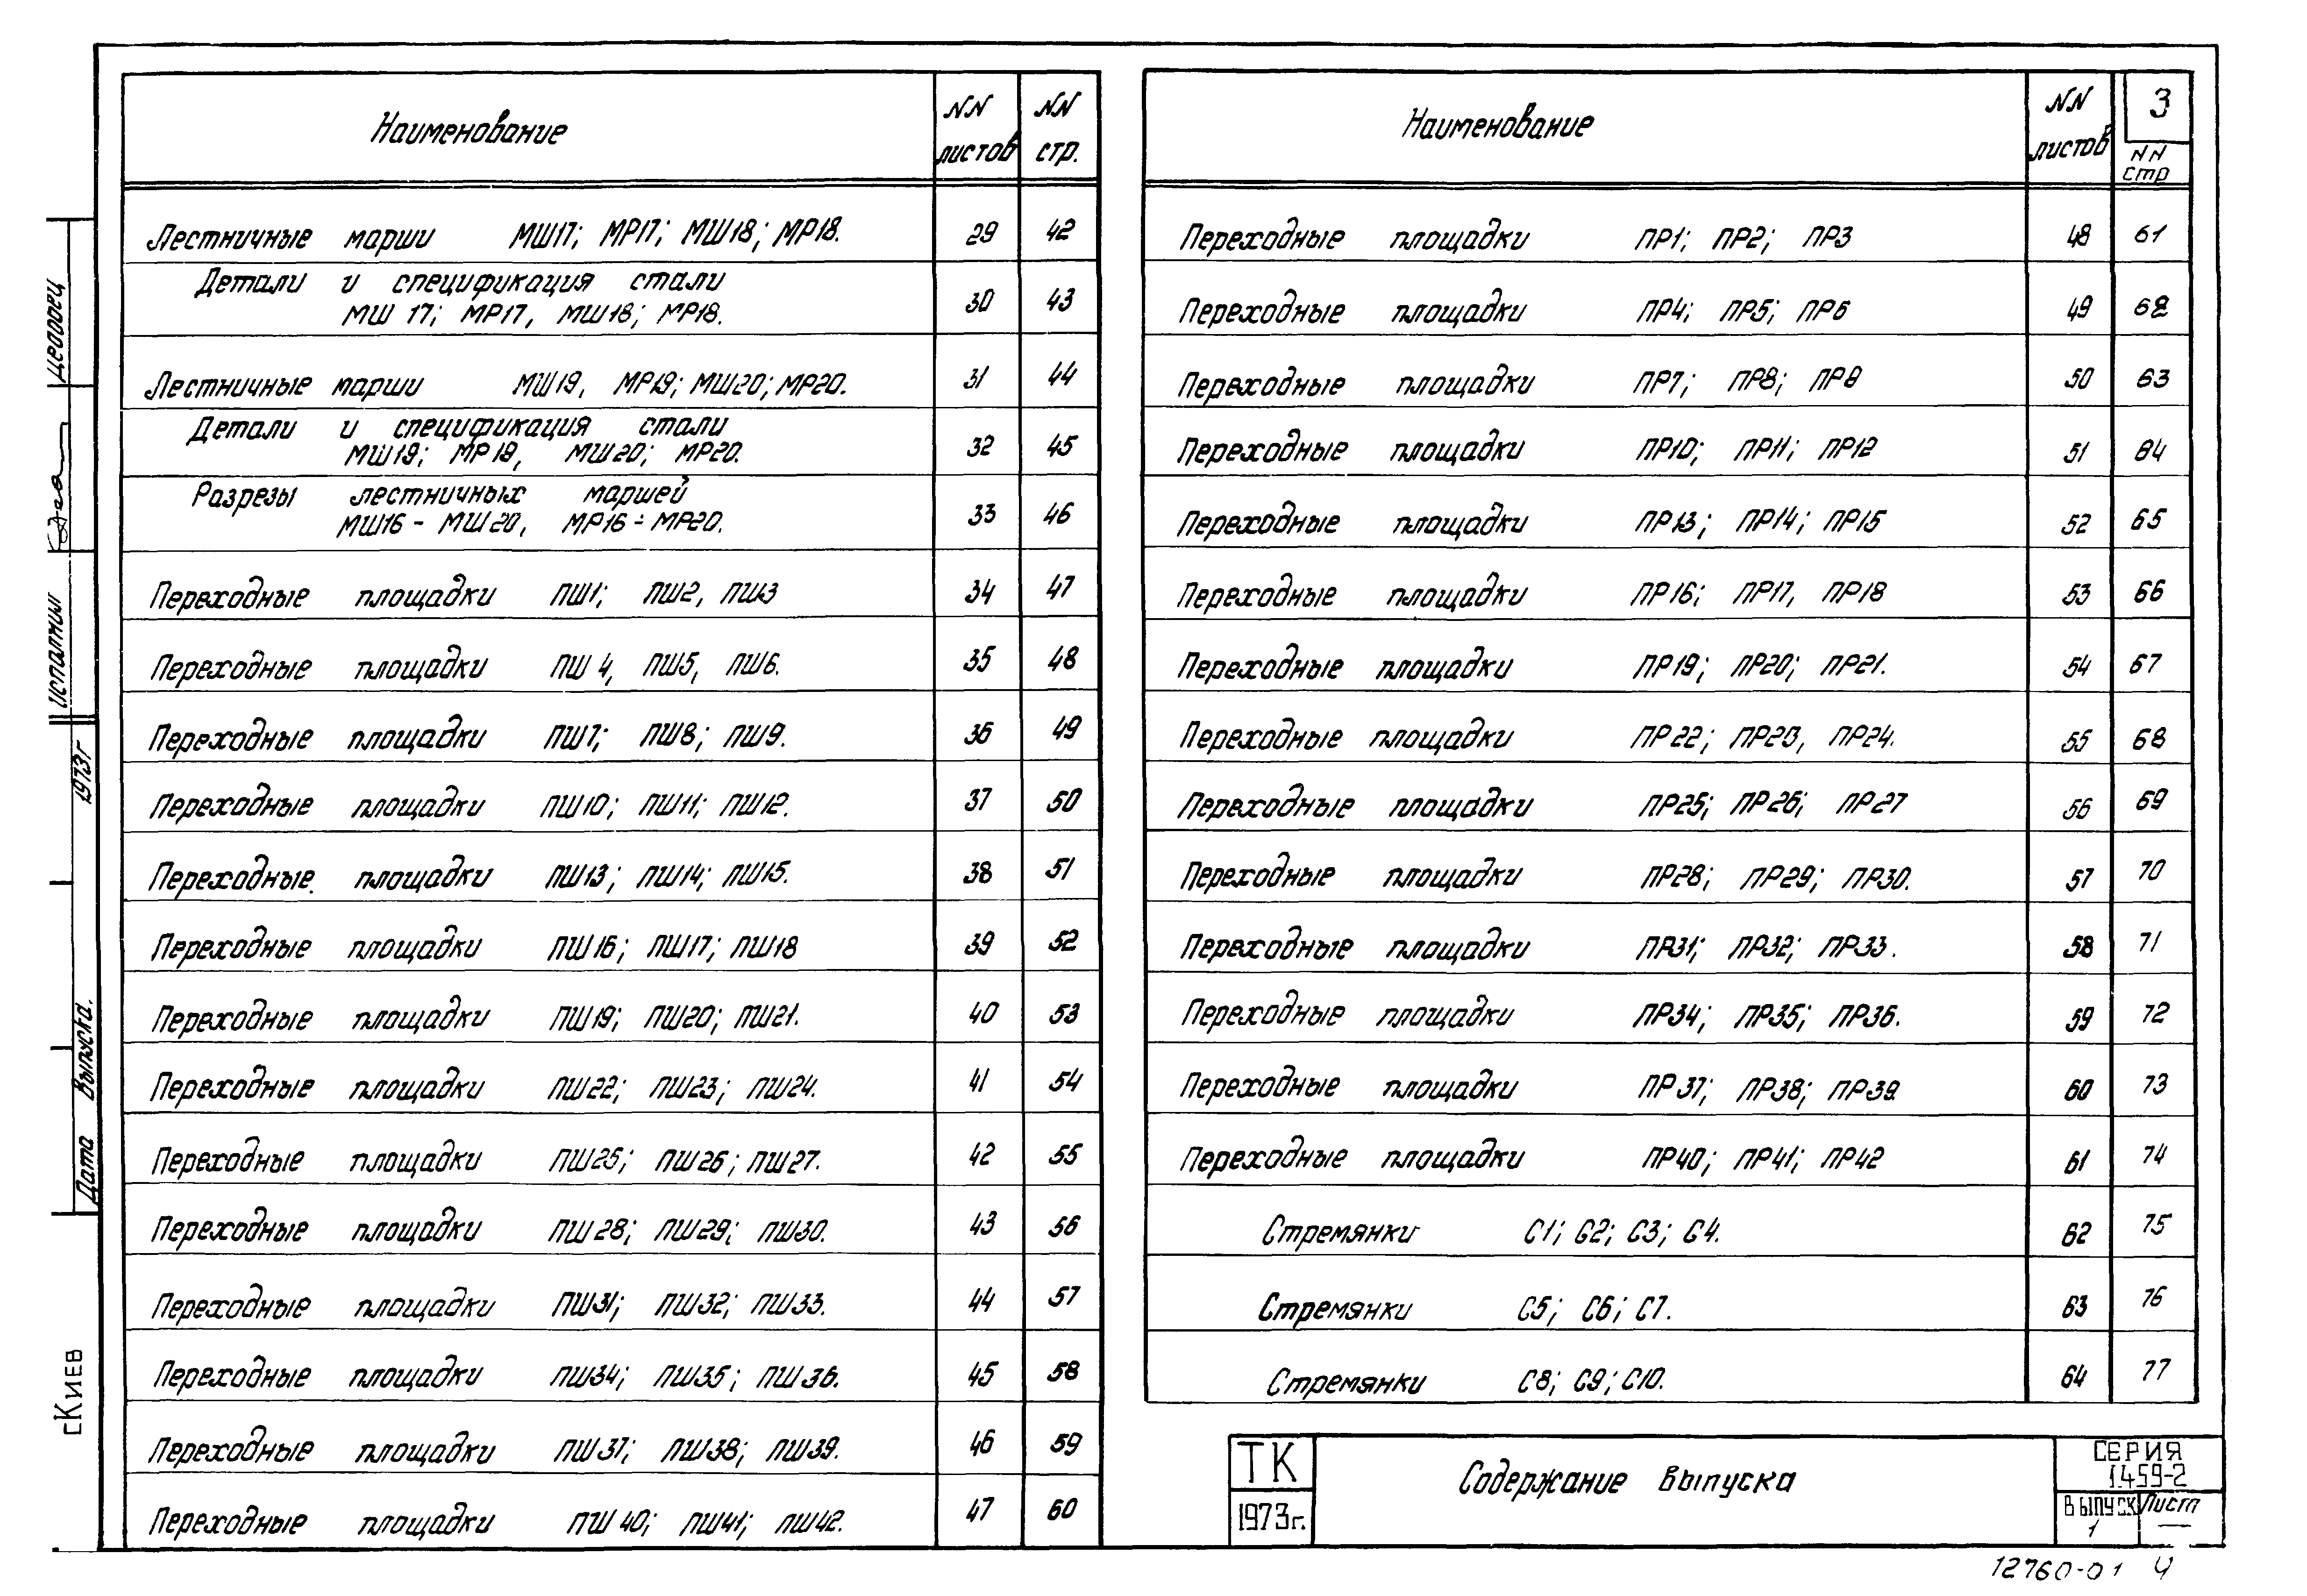 Наименование NN листов NN стр.
Лестничные марши МШ17; МР17; МШ18; МР18. 29 42
Детали и спецификация стали
МШ 17; МР17, МШ18; МР18. 30 43
Лестничные марши МШ19, МР19; МШ20; МР20. 31 44
Детали и спецификация стали
МШ19; МР19, МШ20; МР20. 32 45
Разрезы лестничных маршей
МШ16 - МШ20, МР16 ÷ МР20. 33 46
Переходные площадки ПШ1; ПШ2, ПШ3 34 47
Переходные площадки ПШ 4, ПШ5, ПШ6. 35 48
Переходные площадки ПШ7; ПШ8; ПШ9. 36 49
Переходные площадки ПШ10; ПШ11; ПШ12. 37 50
Переходные. площадки ПШ13; ПШ14; ПШ15. 38 51
Переходные площадки ПШ16; ПШ17; ПШ18 39 52
Переходные площадки ПШ19; ПШ20; ПШ21. 40 53
Переходные площадки ПШ22; ПШ23; ПШ24. 41 54
Переходные площадки ПШ25; ПШ26; ПШ27. 42 55
Переходные площадки ПШ28; ПШ29; ПШ30. 43 56
Переходные площадки ПШ31; ПШ32; ПШ33. 44 57
Переходные площадки ПШ34; ПШ35; ПШ36. 45 58
Переходные площадки ПШ37; ПШ38; ПШ39. 46 59
Переходные площадки ПШ40; ПШ41; ПШ42. 47 60
3
Наименование NN листов NN стр
Переходные площадки ПР1; ПР2; ПР3 48 61
Переходные площадки ПР4; ПР5; ПР6 49 62
Переходные площадки ПР7; ПР8; ПР9 50 63
Переходные площадки ПР10; ПР11; ПР12 51 64
Переходные площадки ПР13; ПР14; ПР15 52 65
Переходные площадки ПР16; ПР17, ПР18 53 66
Переходные площадки ПР19; ПР20; ПР21. 54 67
Переходные площадки ПР22; ПР23, ПР24. 55 68
Переходные площадки ПР25; ПР26; ПР27 56 69
Переходные площадки ПР28; ПР29; ПР30. 57 70
Переходные площадки ПР31; ПР32; ПР33. 58 71
Переходные площадки ПР34; ПР35; ПР36. 59 72
Переходные площадки ПР37; ПР38; ПР39. 60 73
Переходные площадки ПР40; ПР41; ПР42 61 74
Стремянки С1; С2; С3; С4. 62 75
Стремянки С5; С6; С7. 63 76
Стремянки С8; С9; С10. 64 77
ТК
1973г.
Содержание выпуска
СЕРИЯ
1.459-2
ВЫПУСК
1
Лист
—
12760-01 4
1973г
Дата выпуска.
сКиев